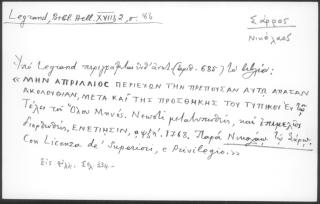 Legrand, Bibl. Hell. XVIII, 2, σ. 86
Σάρρος
Νικόλαος
Ὑπὸ Legrand περιγράφεται (ἀριθ. 685) τὸ βιβλίο:
«ΜΗΝ ΑΠΡΙΛΛΙΟΣ ΠΕΡΙΕΧΩΝ ΤΗΝ ΠΡΕΠΟΥΣΑΝ ΑΥΤΩ ΑΠΑΣΑΝ
ΑΚΟΛΟΥΘΙΑΝ, ΜΕΤΑ ΚΑΙ ΤΗΣ ΠΡΟΣΘΗΚΗΣ ΤΟΥ ΤΥΠΙΚΟΥ Ἐν τῷ
Τέλει τοῦ Ὅλου Μηνός. Νεωστὶ μετατυπωθεὶς, καὶ ἐπιμελῶς
διορθωθείς, ΕΝΕΤΙΗΣΙΝ, αψξή. 1768. Παρὰ Νικολάῳ τῷ Σάρῳ.
Con Licenza de' Superiori, e Privilegio.»
Εἰς φύλλ. Σελ.